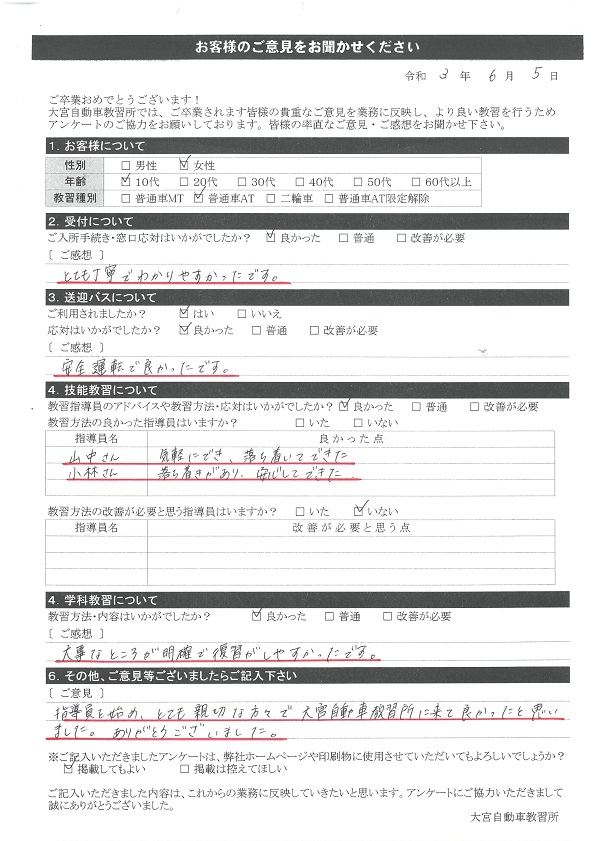 お客様のご意見をお聞かせください
令和 3 年 6 月 5 日
ご卒業おめでとうございます!
大宮自動車教習所では、ご卒業されます皆様の貴重なご意見を業務に反映し、より良い教習を行うため
アンケートのご協力をお願いしております。皆様の率直なご意見・ご感想をお聞かせ下さい。
1. お客様について
性別 □ 男性 ☑ 女性
年齢 ☑ 10代 □ 20代 □ 30代 □ 40代 □ 50代 □ 60代以上
教習種別 □ 普通車MT ☑ 普通車AT □ 二輪車 □ 普通車AT限定解除
2. 受付について
ご入所手続き・窓口応対はいかがでしたか? ☑ 良かった □ 普通 □ 改善が必要
〔 ご感想 〕
とても丁寧でわかりやすかったです。
3. 送迎バスについて
ご利用されましたか? ☑ はい □ いいえ
応対はいかがでしたか? ☑ 良かった □ 普通 □ 改善が必要
〔 ご感想 〕
安全運転で良かったです。
4. 技能教習について
教習指導員のアドバイスや教習方法・応対はいかがでしたか? ☑ 良かった □ 普通 □ 改善が必要
教習方法の良かった指導員はいますか? □ いた □ いない
指導員名 良かった点
山中さん 気軽にでき、落ち着いてできた
小林さん 落ち着きがあり、安心してできた
教習方法の改善が必要と思う指導員はいますか? □ いた ☑ いない
指導員名 改善が必要と思う点
4. 学科教習について
教習方法・内容はいかがでしたか? ☑ 良かった □ 普通 □ 改善が必要
〔 ご感想 〕
大事なところが明確で復習がしやすかったです。
6. その他、ご意見等ございましたらご記入下さい
〔 ご意見 〕
指導員を始め、とても親切な方々で大宮自動車教習所に来て良かったと思い
ました。ありがとうございました。
※ご記入いただきましたアンケートは、弊社ホームページや印刷物に使用させていただいてもよろしいでしょうか?
☑ 掲載してもよい □ 掲載は控えてほしい
ご記入いただきました内容は、これからの業務に反映していきたいと思います。アンケートにご協力いただきまして
誠にありがとうございました。
大宮自動車教習所